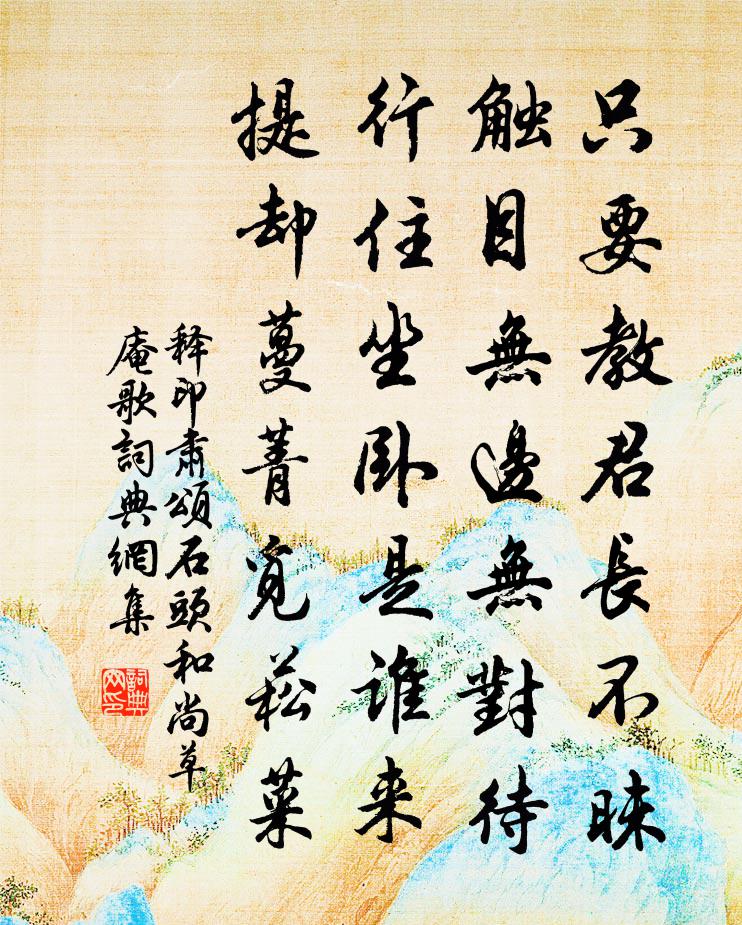 只要教君長不昧
觸目無邊無對待
行住坐卧是誰来
提却蔓菁覓菘菜
释印肅頌石頭和尚草
庵歌詞典網集
詞典
网印